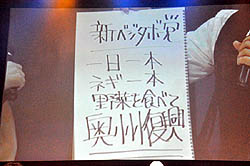 新ベジタボ党
一日一本
ネギ一本
野菜を食べて
奥川復興